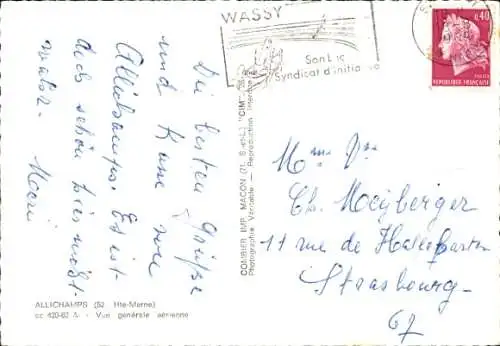 WASSY
Son Lac
Syndicat d'initiative
0,40
REPUBLIQUE FRANÇAISE
Die besten Grüße
und Küsse von
Allichamps. Es ist
doch schön hier
COMBIER IMP. MACON (71. S.-et-L.) "CIM"
Photographie Véritable - Reproduction interdite
Mme Vve
Ch. Meyberger
11 rue de
Strasbourg-
67
ALLICHAMPS (52. Hte-Marne)
cc 420-62 A - Vue générale aérienne